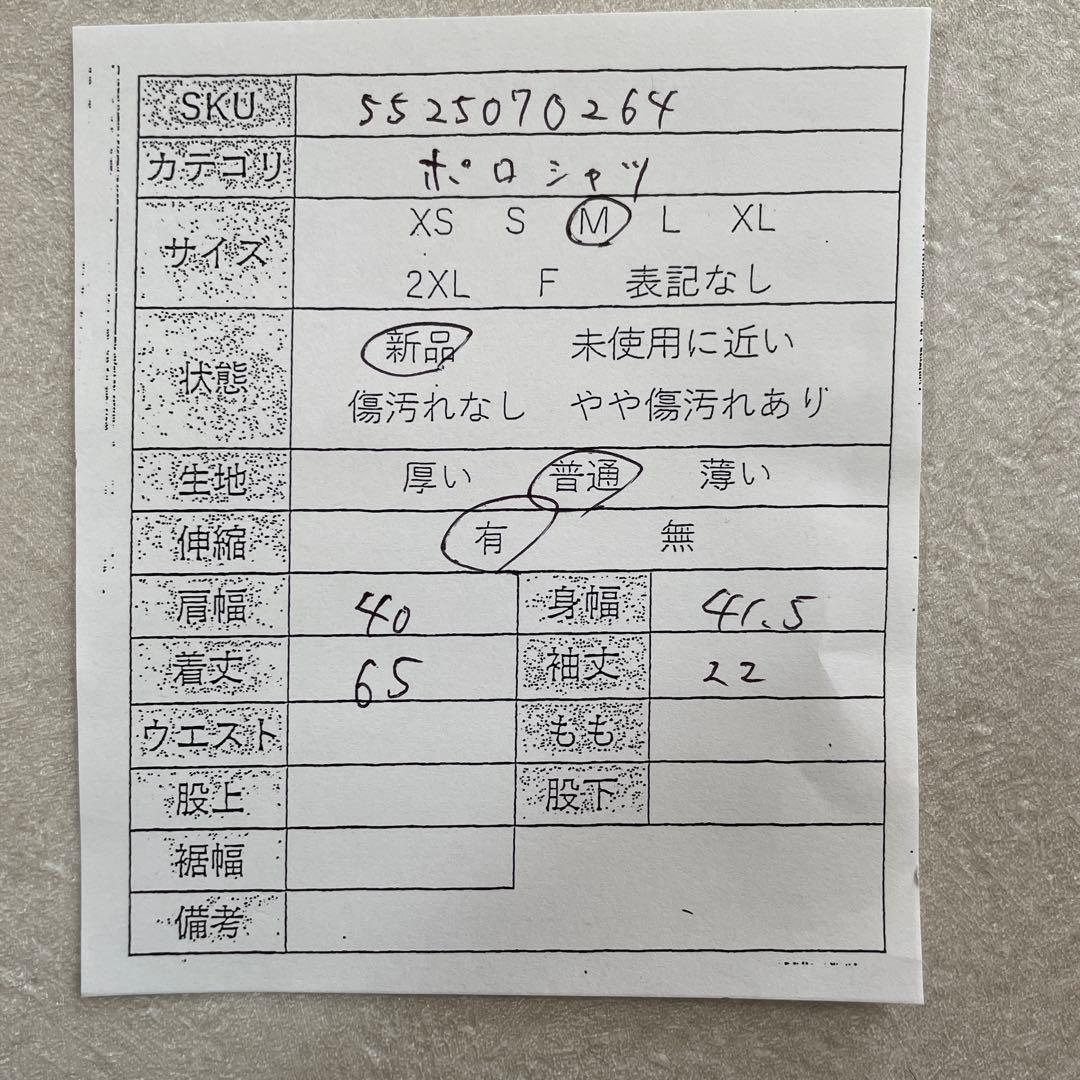 SKU 5525070264
カテゴリ ポロシャツ
サイズ XS S M L XL
2XL F 表記なし
状態 新品 未使用に近い
傷汚れなし やや傷汚れあり
生地 厚い 普通 薄い
伸縮 有 無
肩幅 40 身幅 41.5
着丈 65 袖丈 22
ウエスト もも
股上 股下
裾幅
備考